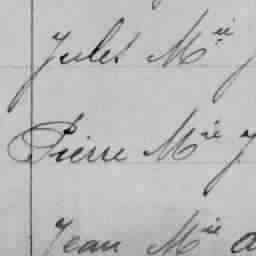 Jules Mie J
Pierre Mie J
Jean Mie a